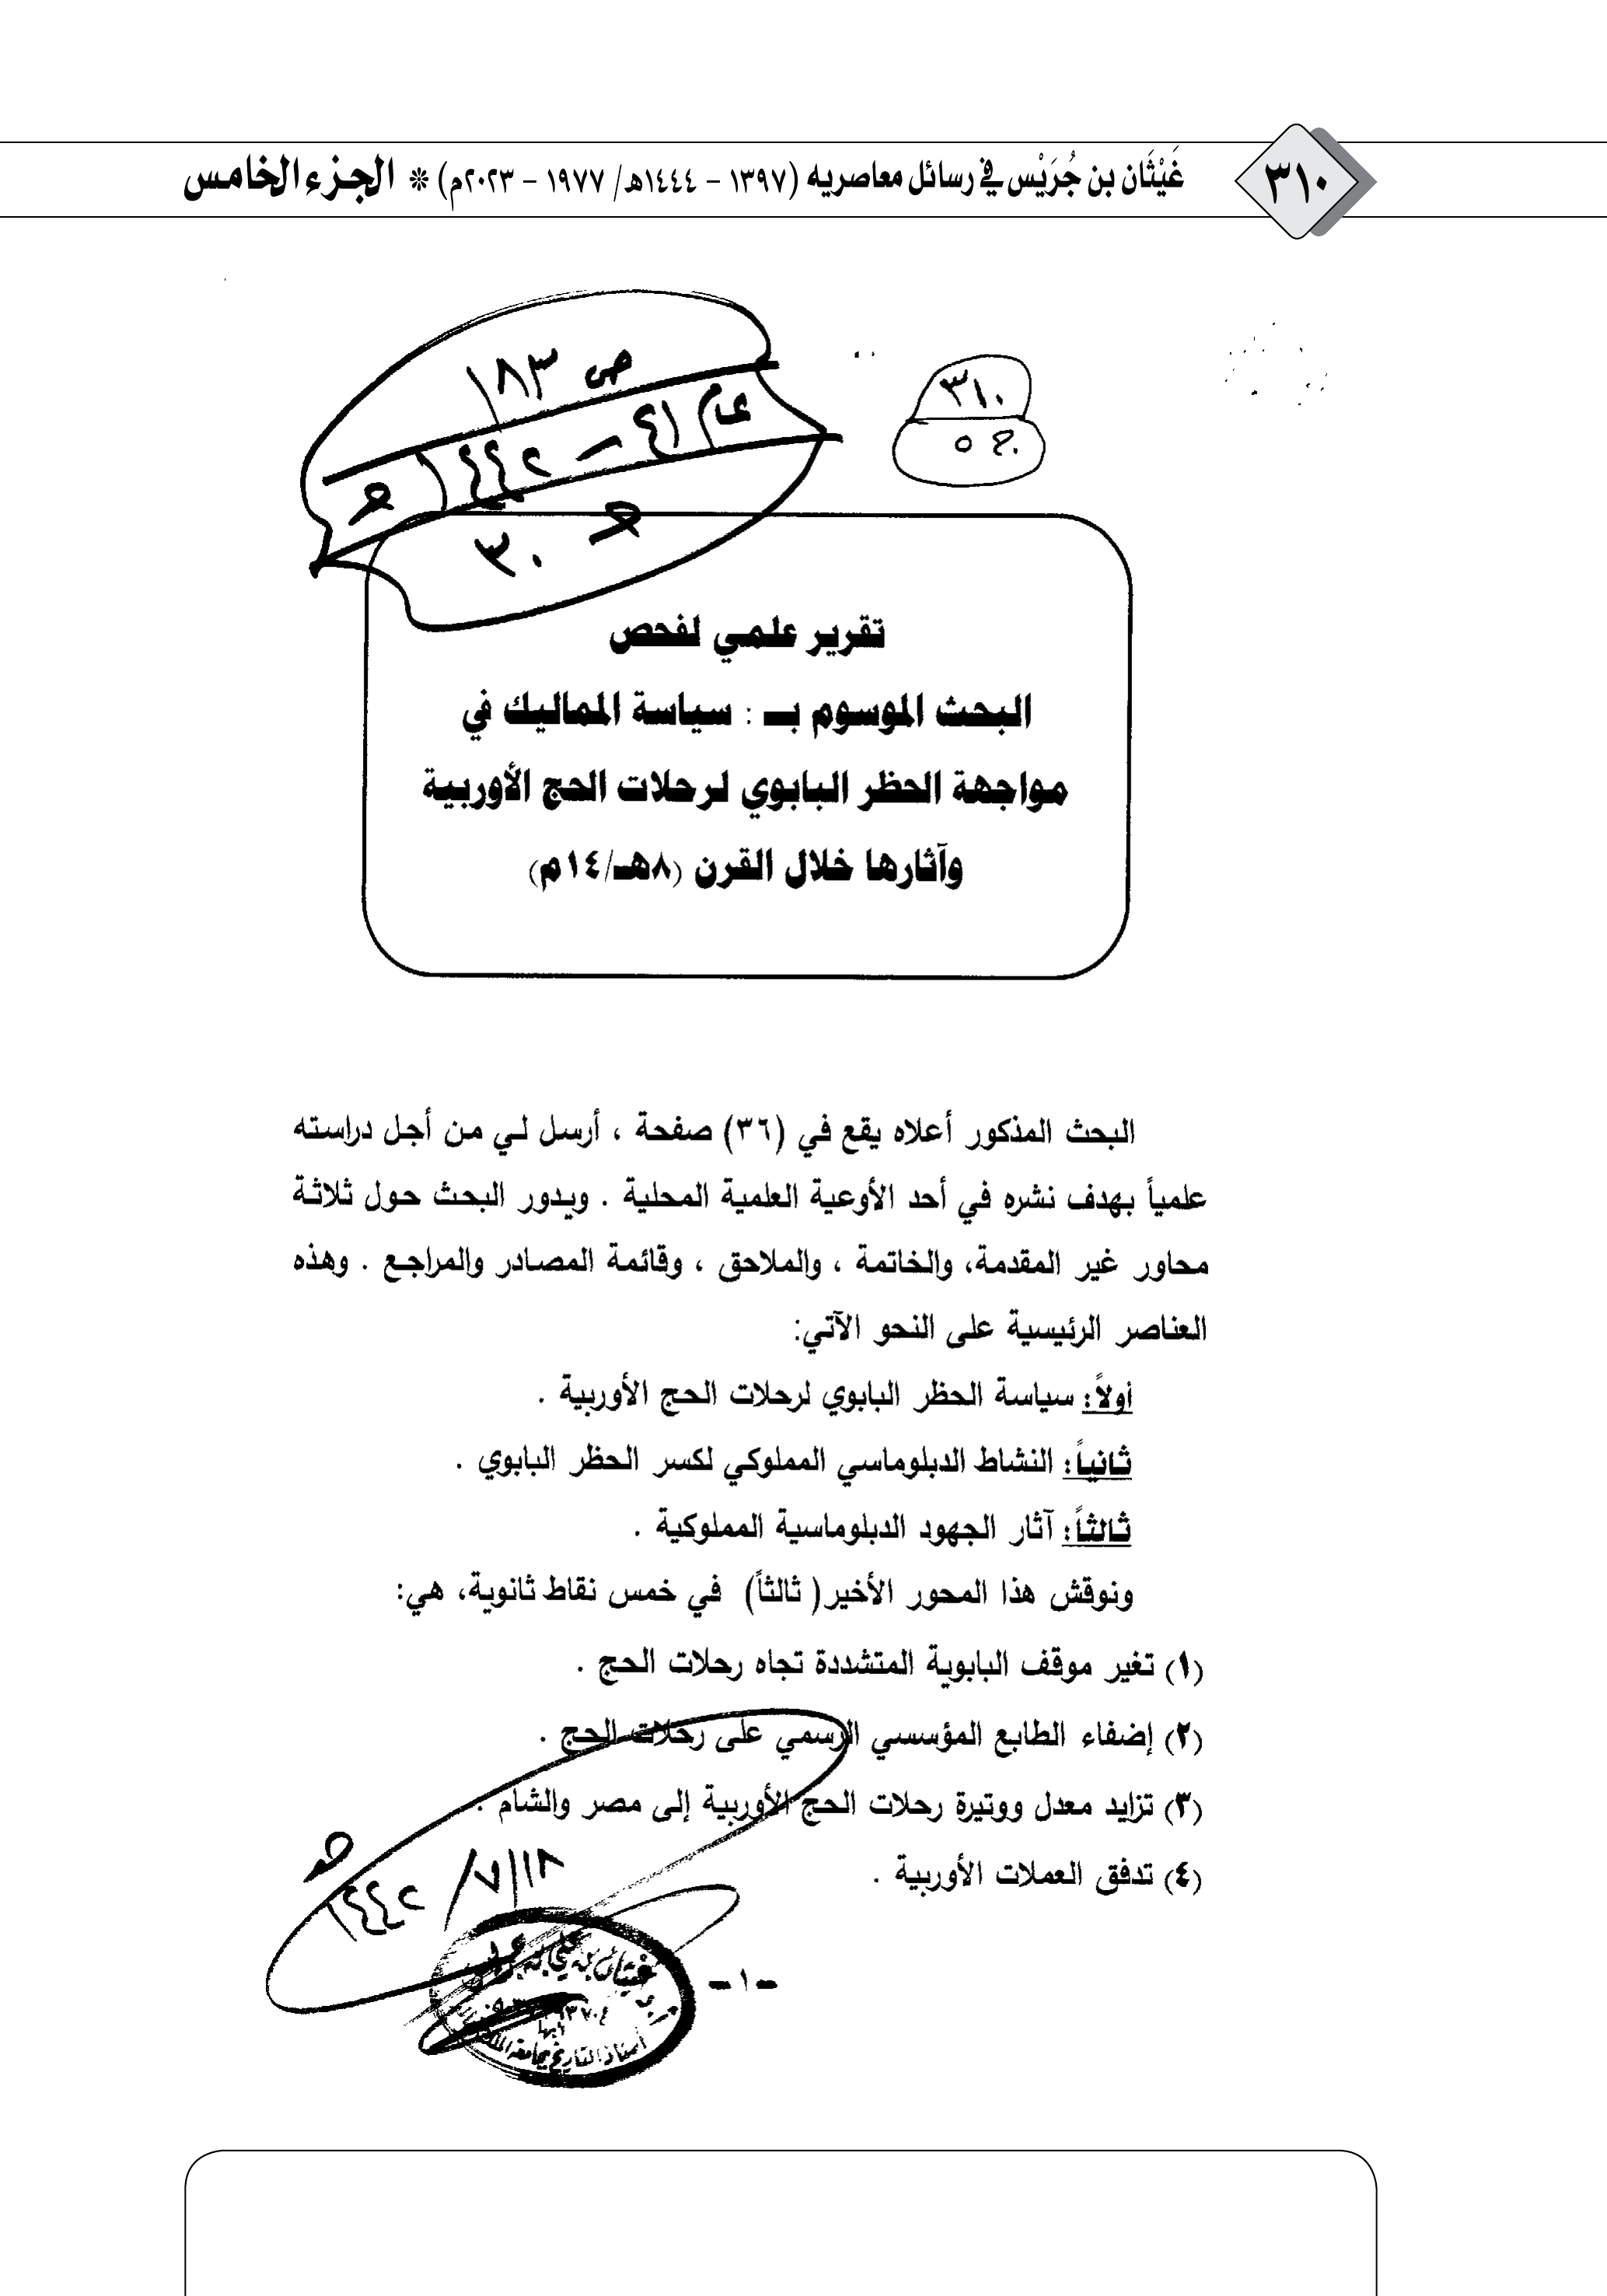 ٣١٠
غَيْثَان بن جُرَيْس في رسائل معاصريه (١٣٩٧ - ١٤٤٤هـ/ ١٩٧٧ - ٢٠٢٣م) * الجزء الخامس
ص ١٨٣
عام ٤١ - ١٤٤٢هـ
٣٠
٣١٠
ج ٥
تقرير علمي لفحص
البحث الموسوم بـ : سياسة المماليك في
مواجهة الحظر البابوي لرحلات الحج الأوربية
وآثارها خلال القرن (٨هـ/١٤م)
البحث المذكور أعلاه يقع في (٣٦) صفحة ، أرسل لي من أجل دراسته
علمياً بهدف نشره في أحد الأوعية العلمية المحلية . ويدور البحث حول ثلاثة
محاور غير المقدمة، والخاتمة ، والملاحق ، وقائمة المصادر والمراجع . وهذه
العناصر الرئيسية على النحو الآتي:
أولاً: سياسة الحظر البابوي لرحلات الحج الأوربية .
ثانياً: النشاط الدبلوماسي المملوكي لكسر الحظر البابوي .
ثالثاً: آثار الجهود الدبلوماسية المملوكية .
ونوقش هذا المحور الأخير( ثالثاً) في خمس نقاط ثانوية، هي:
(١) تغير موقف البابوية المتشددة تجاه رحلات الحج .
(٢) إضفاء الطابع المؤسسي الرسمي على رحلات الحج .
(٣) تزايد معدل ووتيرة رحلات الحج الأوربية إلى مصر والشام .
(٤) تدفق العملات الأوربية .
١٨/٧/١٤٤٢هـ
غيثان بن علي بن
أبها
أستاذ التاريخ بجامعة الملك
-١-